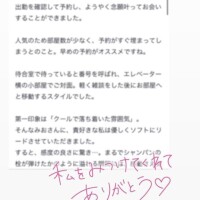 出勤を確認して予約し、ようやく念願叶ってお会い
することができました。
人気のため部屋数が少なく、予約がすぐ埋まってし
まうとのこと。早めの予約がオススメですね。
待合室で待っていると番号を呼ばれ、エレベーター
横の小部屋でご対面。軽く雑談をした後にお部屋へ
と移動するスタイルでした。
第一印象は「クールで落ち着いた雰囲気」。
そんなみおさんに、貴好きな私は優しくソフトにリ
ードさせていただきました。
すると、感度の良さに驚き…。まるでシャンパンの
栓が弾けたかのように
私をみつけてくれて
ありがとう♡